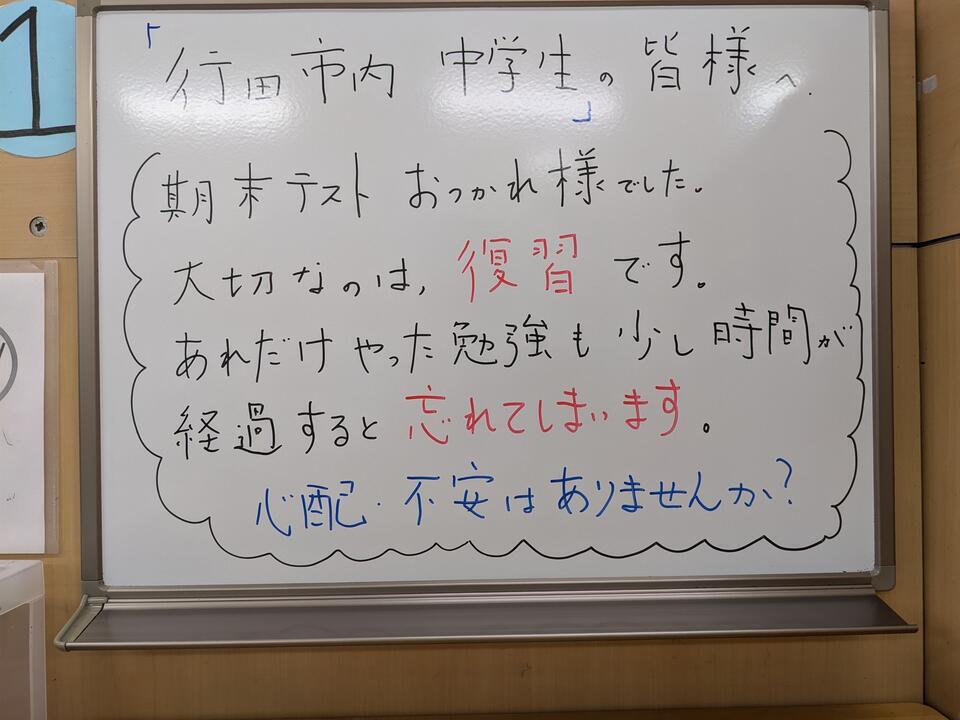 1
「行田市内 中学生の皆様へ.」
期末テスト おつかれ様でした。
大切なのは, 復習 です。
あれだけやった勉強も 少し時間が
経過すると 忘れてしまいます。
心配・不安はありませんか?